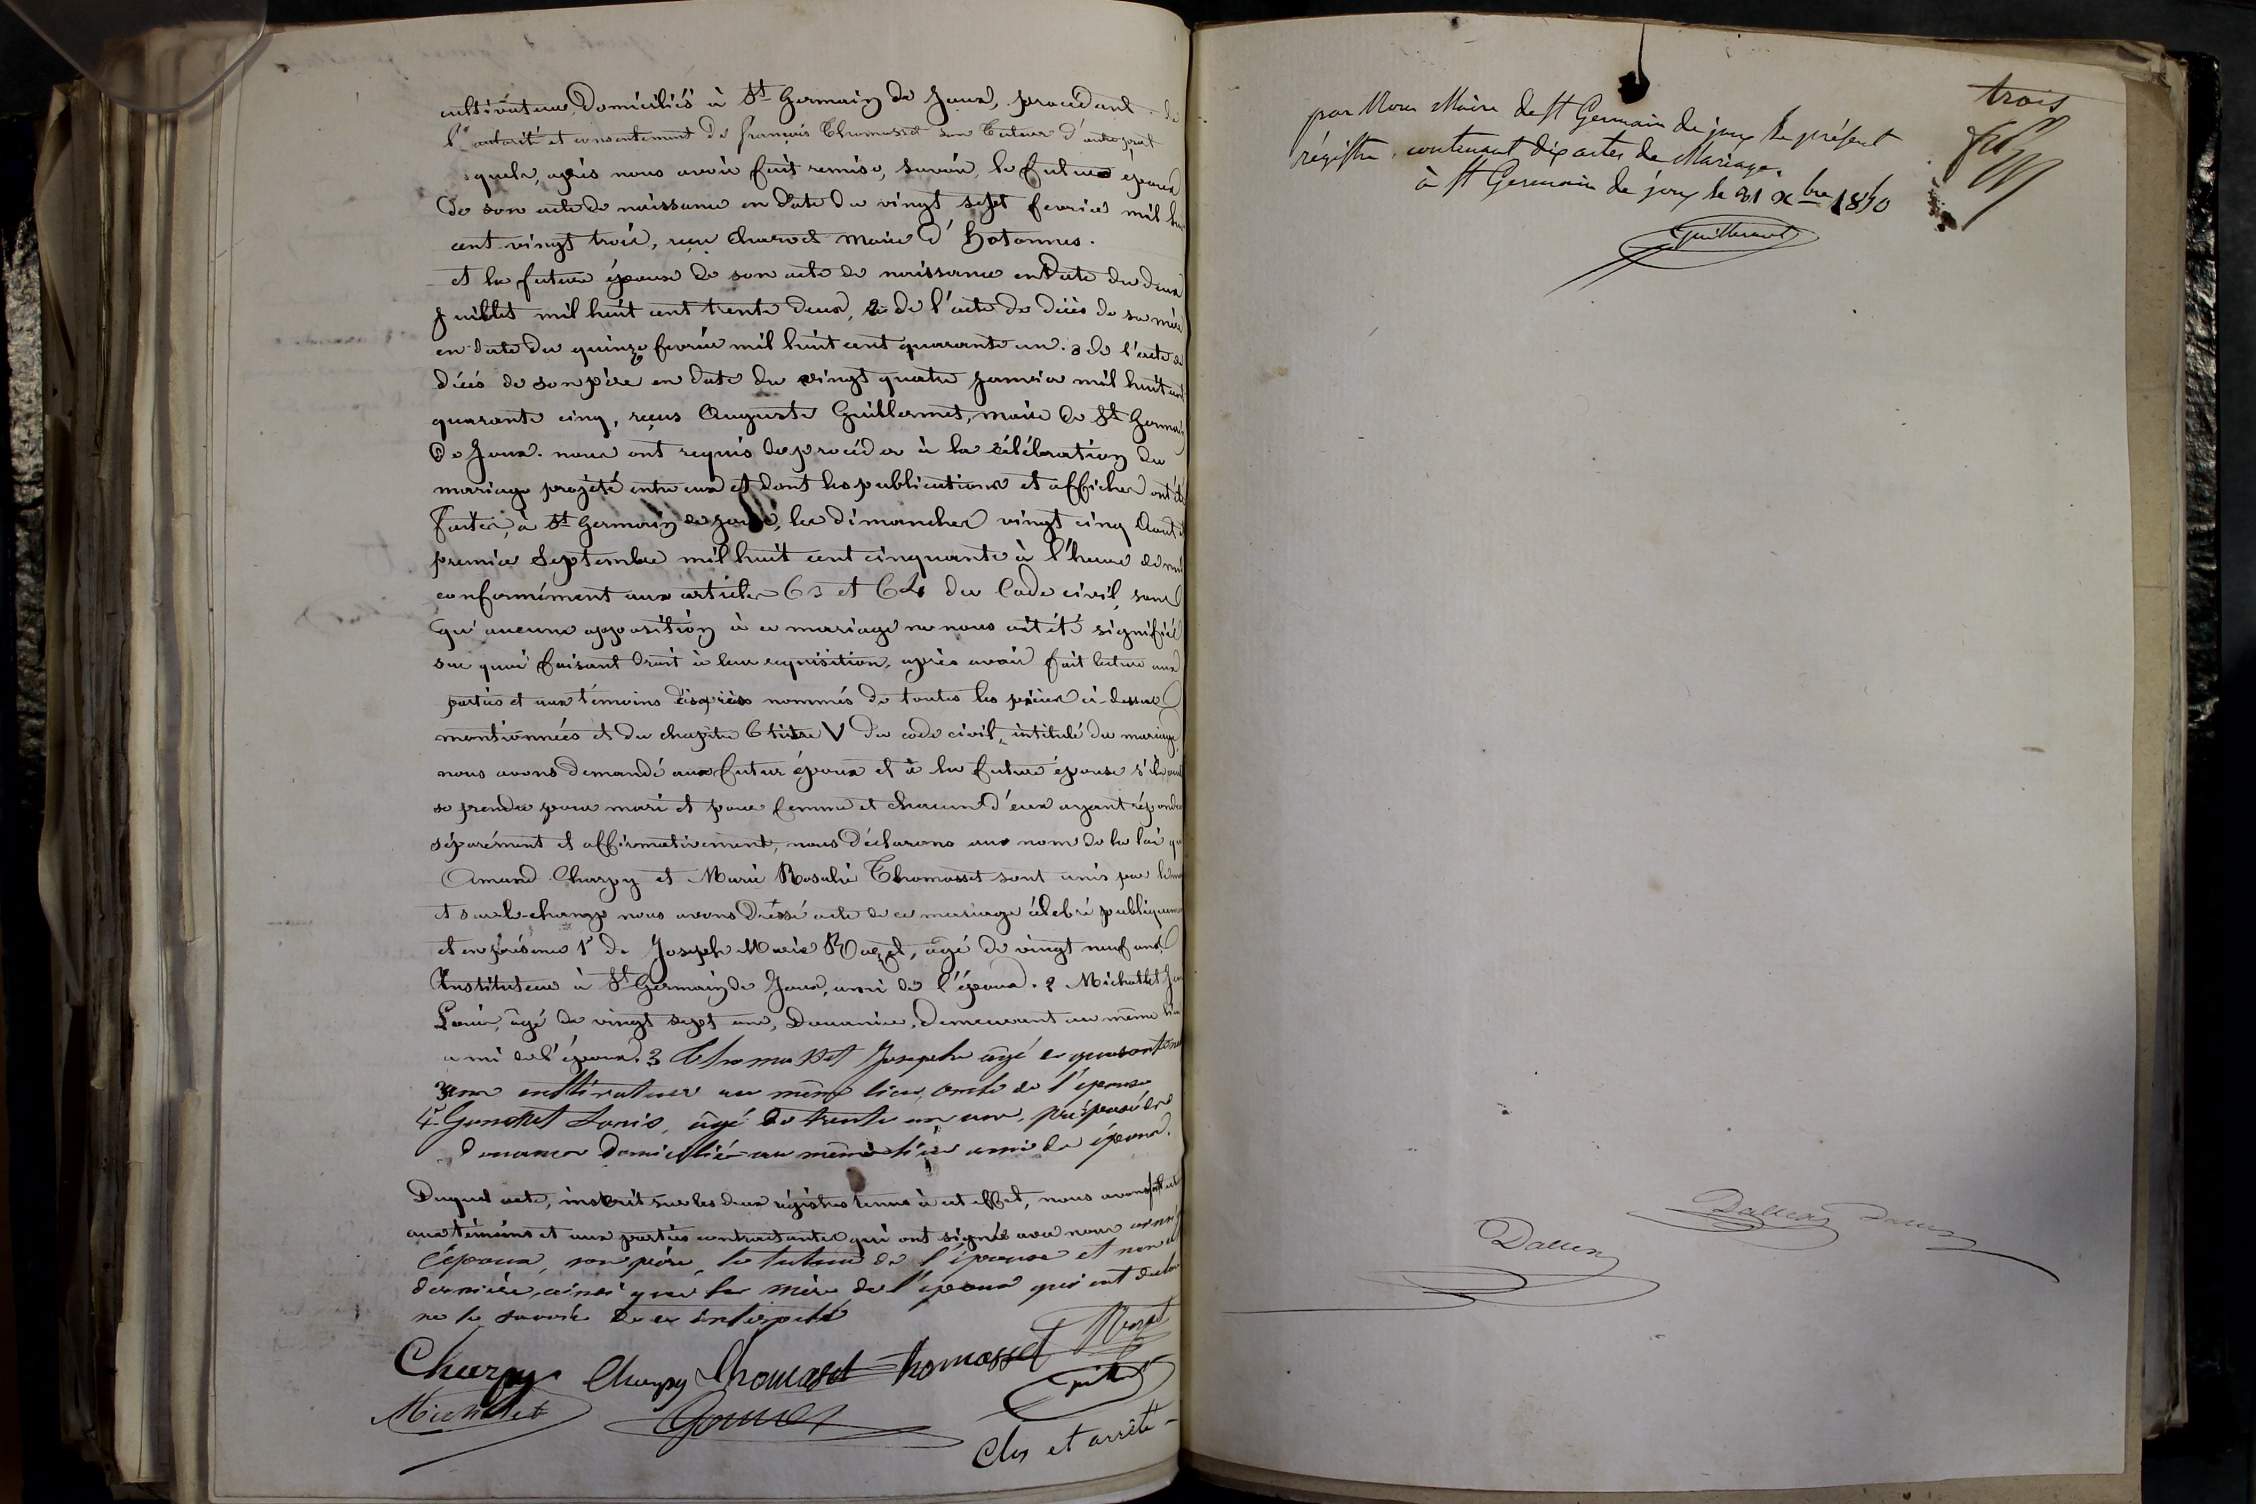 cultivateurs, Domiciliés à St Germain de Joux, procédant de
l'autorité et consentement de françois Thomasset son Tuteur d'autre part
quels, après nous avoir fait remise, savoir, le futur époux
De son acte de naissance en date du vingt sept fevrier mil hui
cent vingt trois, reçu Charvet maire d'Hotonnes.
et la future épouse de son acte de naissance en Date du deux
Juillet mil huit cent trente deux, 2 de l'acte de décès de sa mère
en date du quinze fevrier mil huit cent quarante un. 3 de l'acte de
décès de son père en date du vingt quatre janvier mil huit cent
quarante cinq, reçus Auguste Guillermet, maire de St Germain
De Joux. nous ont requis de procéder à la célébration du
mariage projeté entre eux et dont les publications et affiches ont été
faites, à St Germain de Joux, les dimanches vingt cinq Aout et
premier Septembre mil huit cent cinquante à l'heure de midi
conformément aux articles 63 et 64 du Code civil, sans
qu'aucune opposition à ce mariage ne nous ait été signifiée
sur quoi faisant droit à leur requisition, après avoir fait lecture aux
parties et aux témoins ciaprès nommés de toutes les pièces ci-dessus
mentionnées et du chapitre 6 titre V du code civil, intitulé du mariage,
nous avons demandé aux futur époux et à la future épouse s'ils veul
se prendre pour mari et pour femme et chacun d'eux ayant répondu
séparément et affirmativement, nous déclarons aux nom de la loi que
Amand Charpy et Marie Rosalie Thomasset sont unis par le ma
et sur-le-champ nous avons Dréssé acte de ce mariage célebré publiquem
et en présence 1r de Joseph Marie Rozet, âgé de vingt neuf ans,
Instituteur à St Germain de Joux, ami de l'époux. 2 Michollet Jean
Louis, âgé de vingt sept ans, Douanier, demeurant au même lieu
ami de l'époux. 3 Thomasset Joseph âgé de quarante
ans cultivateur au même lieu, oncle de l'épouse
4r Louis, âgé de trente un ans, préposé des
douanes domicilié au même lieu ami de époux.
Duquel acte, inscrit sur les deux régistres tenus à cet effet, nous avons fait lect
aux témoins et aux parties contractantes qui ont signés avec nous
l'époux, son père, le tuteur de l'épouse et non cet
dernière, ainsi que la mère de l'époux qui ont déclaré
ne le savoir de ce interpellé
Charpy Charpy Thomasset Thomasset Rozet
Michollet
Clos et arrêté
par Nous Maire de St Germain de joux le présent
régistre, contenant dix actes de Mariage.
à St Germain de joux le 31 Xbre 1850
Guillermet
trois